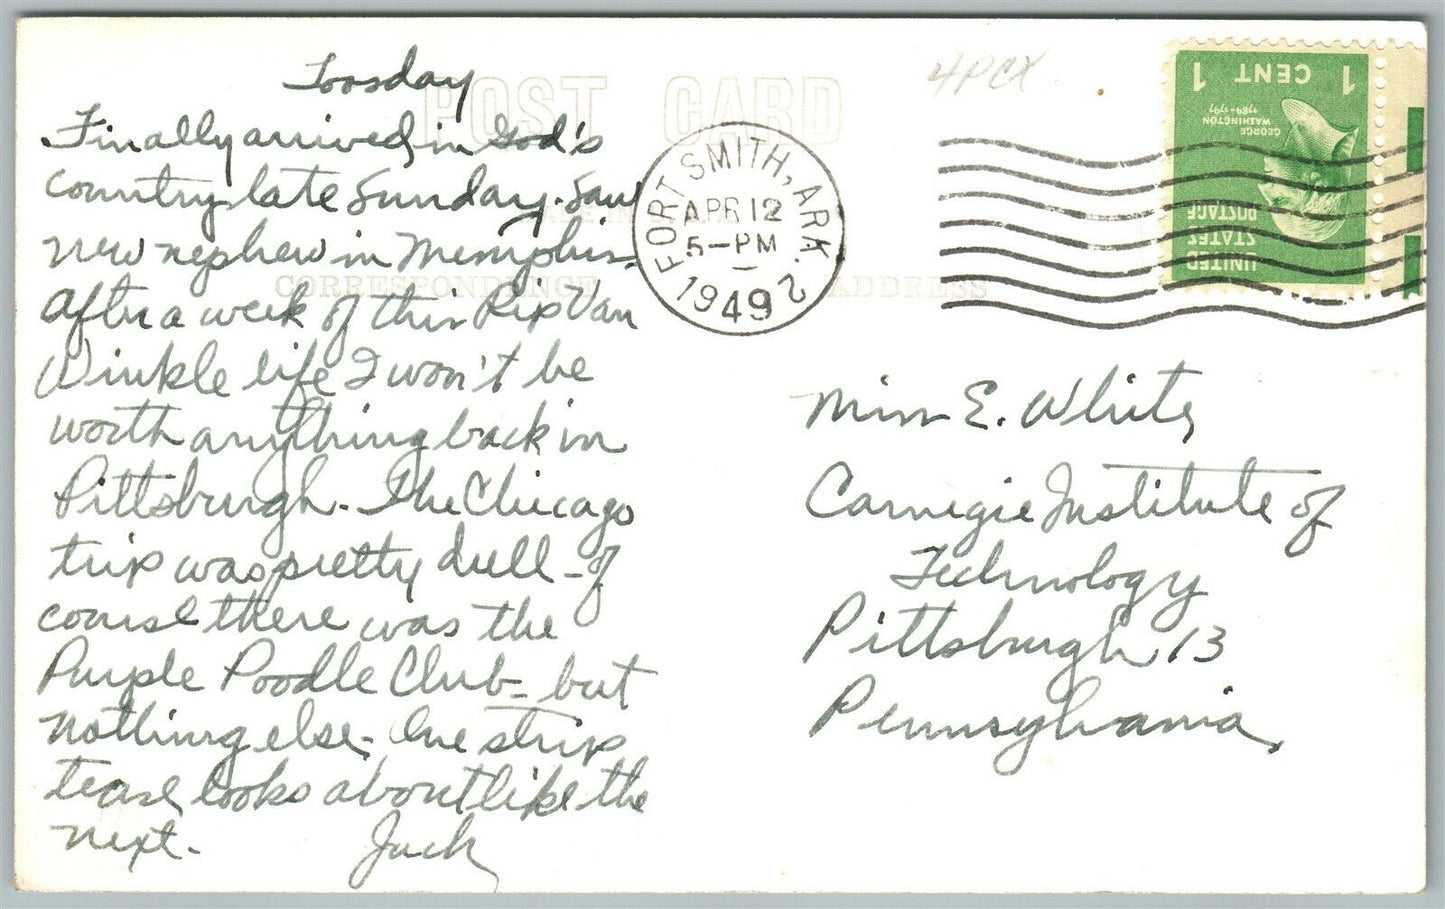 Toosday
Finally arrived in God's
country late Sunday. Saw
new nephew in Memphis.
After a week of this Rip Van
Winkle life I won't be
worth anything back in
Pittsburgh. The Chicago
trip was pretty dull - of
course there was the
Purple Poodle Club - but
nothing else. One strip
tease looks about like the
next. Jack
POST CARD
CORRESPONDENCE
ADDRESS
4PCX
FORT SMITH, ARK. 2
APR 12
5-PM
1949
1 CENT 1
GEORGE
WASHINGTON
1789-1797
UNITED
STATES
POSTAGE
Miss E. White,
Carnegie Institute of
Technology
Pittsburgh 13
Pennsylvania.